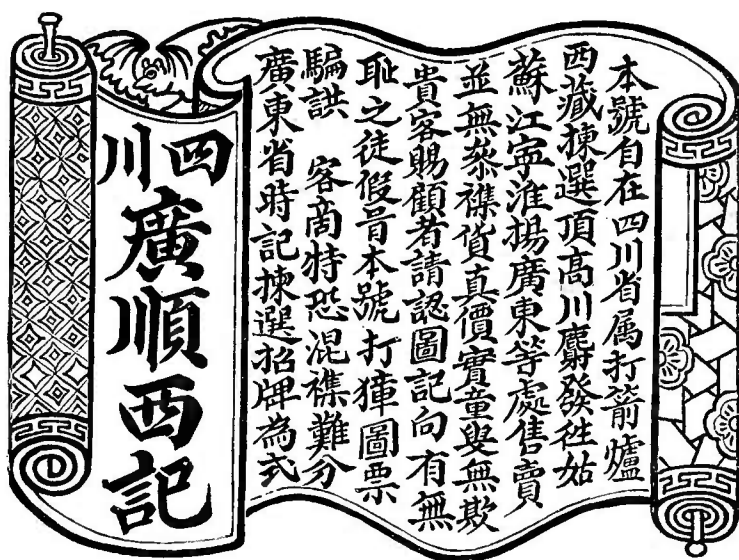 本號自在四川省属打箭爐
西藏揀選頂高川麝發往姑
蘇江寧淮揚廣東等處售賣
並無叅襍貨真價實童叟無欺
貴客賜顧者請認圖記向有無
耻之徒假冒本號打獐圖票
騙誆 客商特恐混襍難分
廣東省時記揀選招牌為式
四川
廣順西記